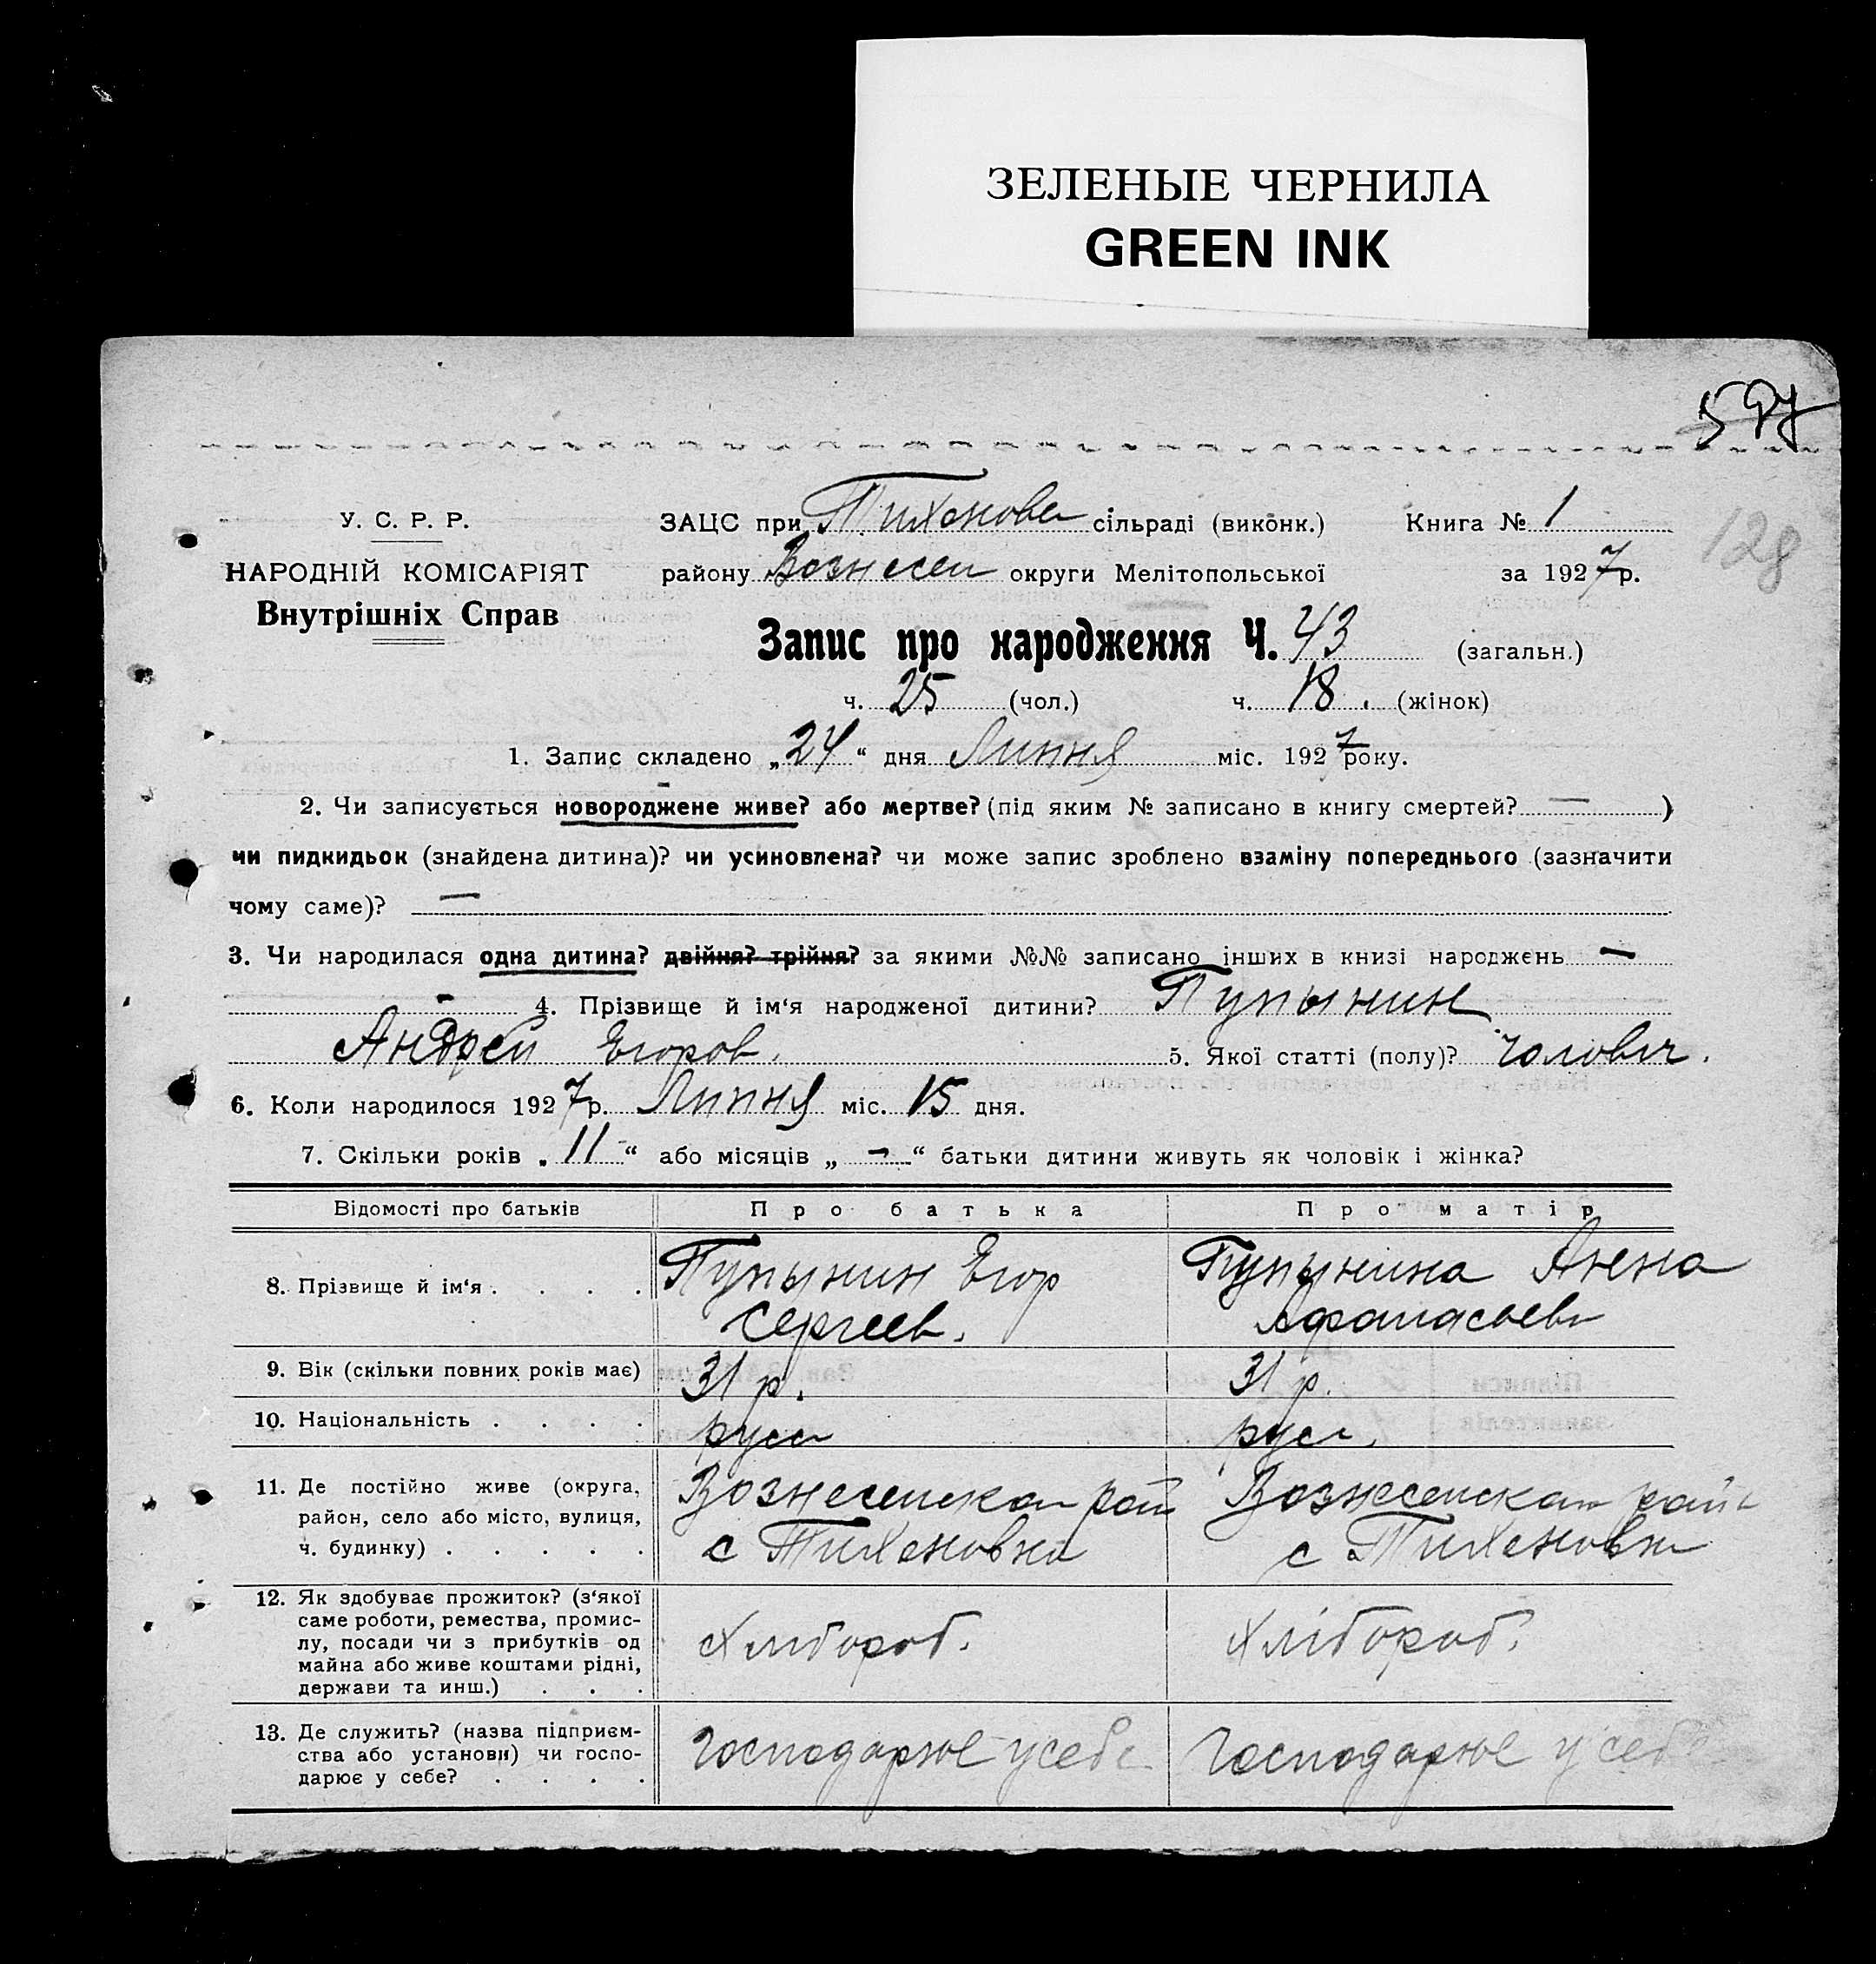 ЗЕЛЕНЫЕ ЧЕРНИЛА
GREEN INK
128
У. С. Р. Р.
НАРОДНІЙ КОМІСАРІЯТ
Внутрішніх Справ
ЗАЦС при Тихонов сільраді (виконк.) Книга № 1
району Вознесен округи Мелітопольської за 1927 р.
Запис про народження Ч. 43 (загальн.)
ч. 25 (чол.) ч. 18. (жінок)
1. Запис складено „24“ дня Липня міс. 1927 року.
2. Чи записується новороджене живе? або мертве? (під яким № записано в книгу смертей? — )
чи пидкидьок (знайдена дитина)? чи усиновлена? чи може запис зроблено взаміну попереднього (зазначити
чому саме)? —
3. Чи народилася одна дитина? двійня? трійня? за якими №№ записано інших в книзі народжень —
— 4. Прізвище й ім'я народженої дитини? Пупынин
Андрей Егоров. 5. Якої статті (полу)? чоловіч.
6. Коли народилося 1927 р. Липня міс. 15 дня.
7. Скільки років „11“ або місяців „—“ батьки дитини живуть як чоловік і жінка?
Відомості про батьків Про батька Про матір
8. Прізвище й ім'я . . . . Пупынин Егор Сергеев. Пупынина Анна Афанасьев
9. Вік (скільки повних років має) 31 р. 31 р.
10. Національність . . . . русс рус.
11. Де постійно живе (округа,
район, село або місто, вулиця,
ч. будинку) . . . . .
Вознесенска рай
с Тихоновка
Вознесенска рай
с Тихоновка
12. Як здобуває прожиток? (з'якої
саме роботи, ремества, промис-
лу, посади чи з прибутків од
майна або живе коштами рідні,
держави та инш.) . . .
Хлібороб. Хлібороб.
13. Де служить? (назва підприєм-
ства або установи) чи госпо-
дарює у себе? . . . .
Господарює у себе Господарює у себе